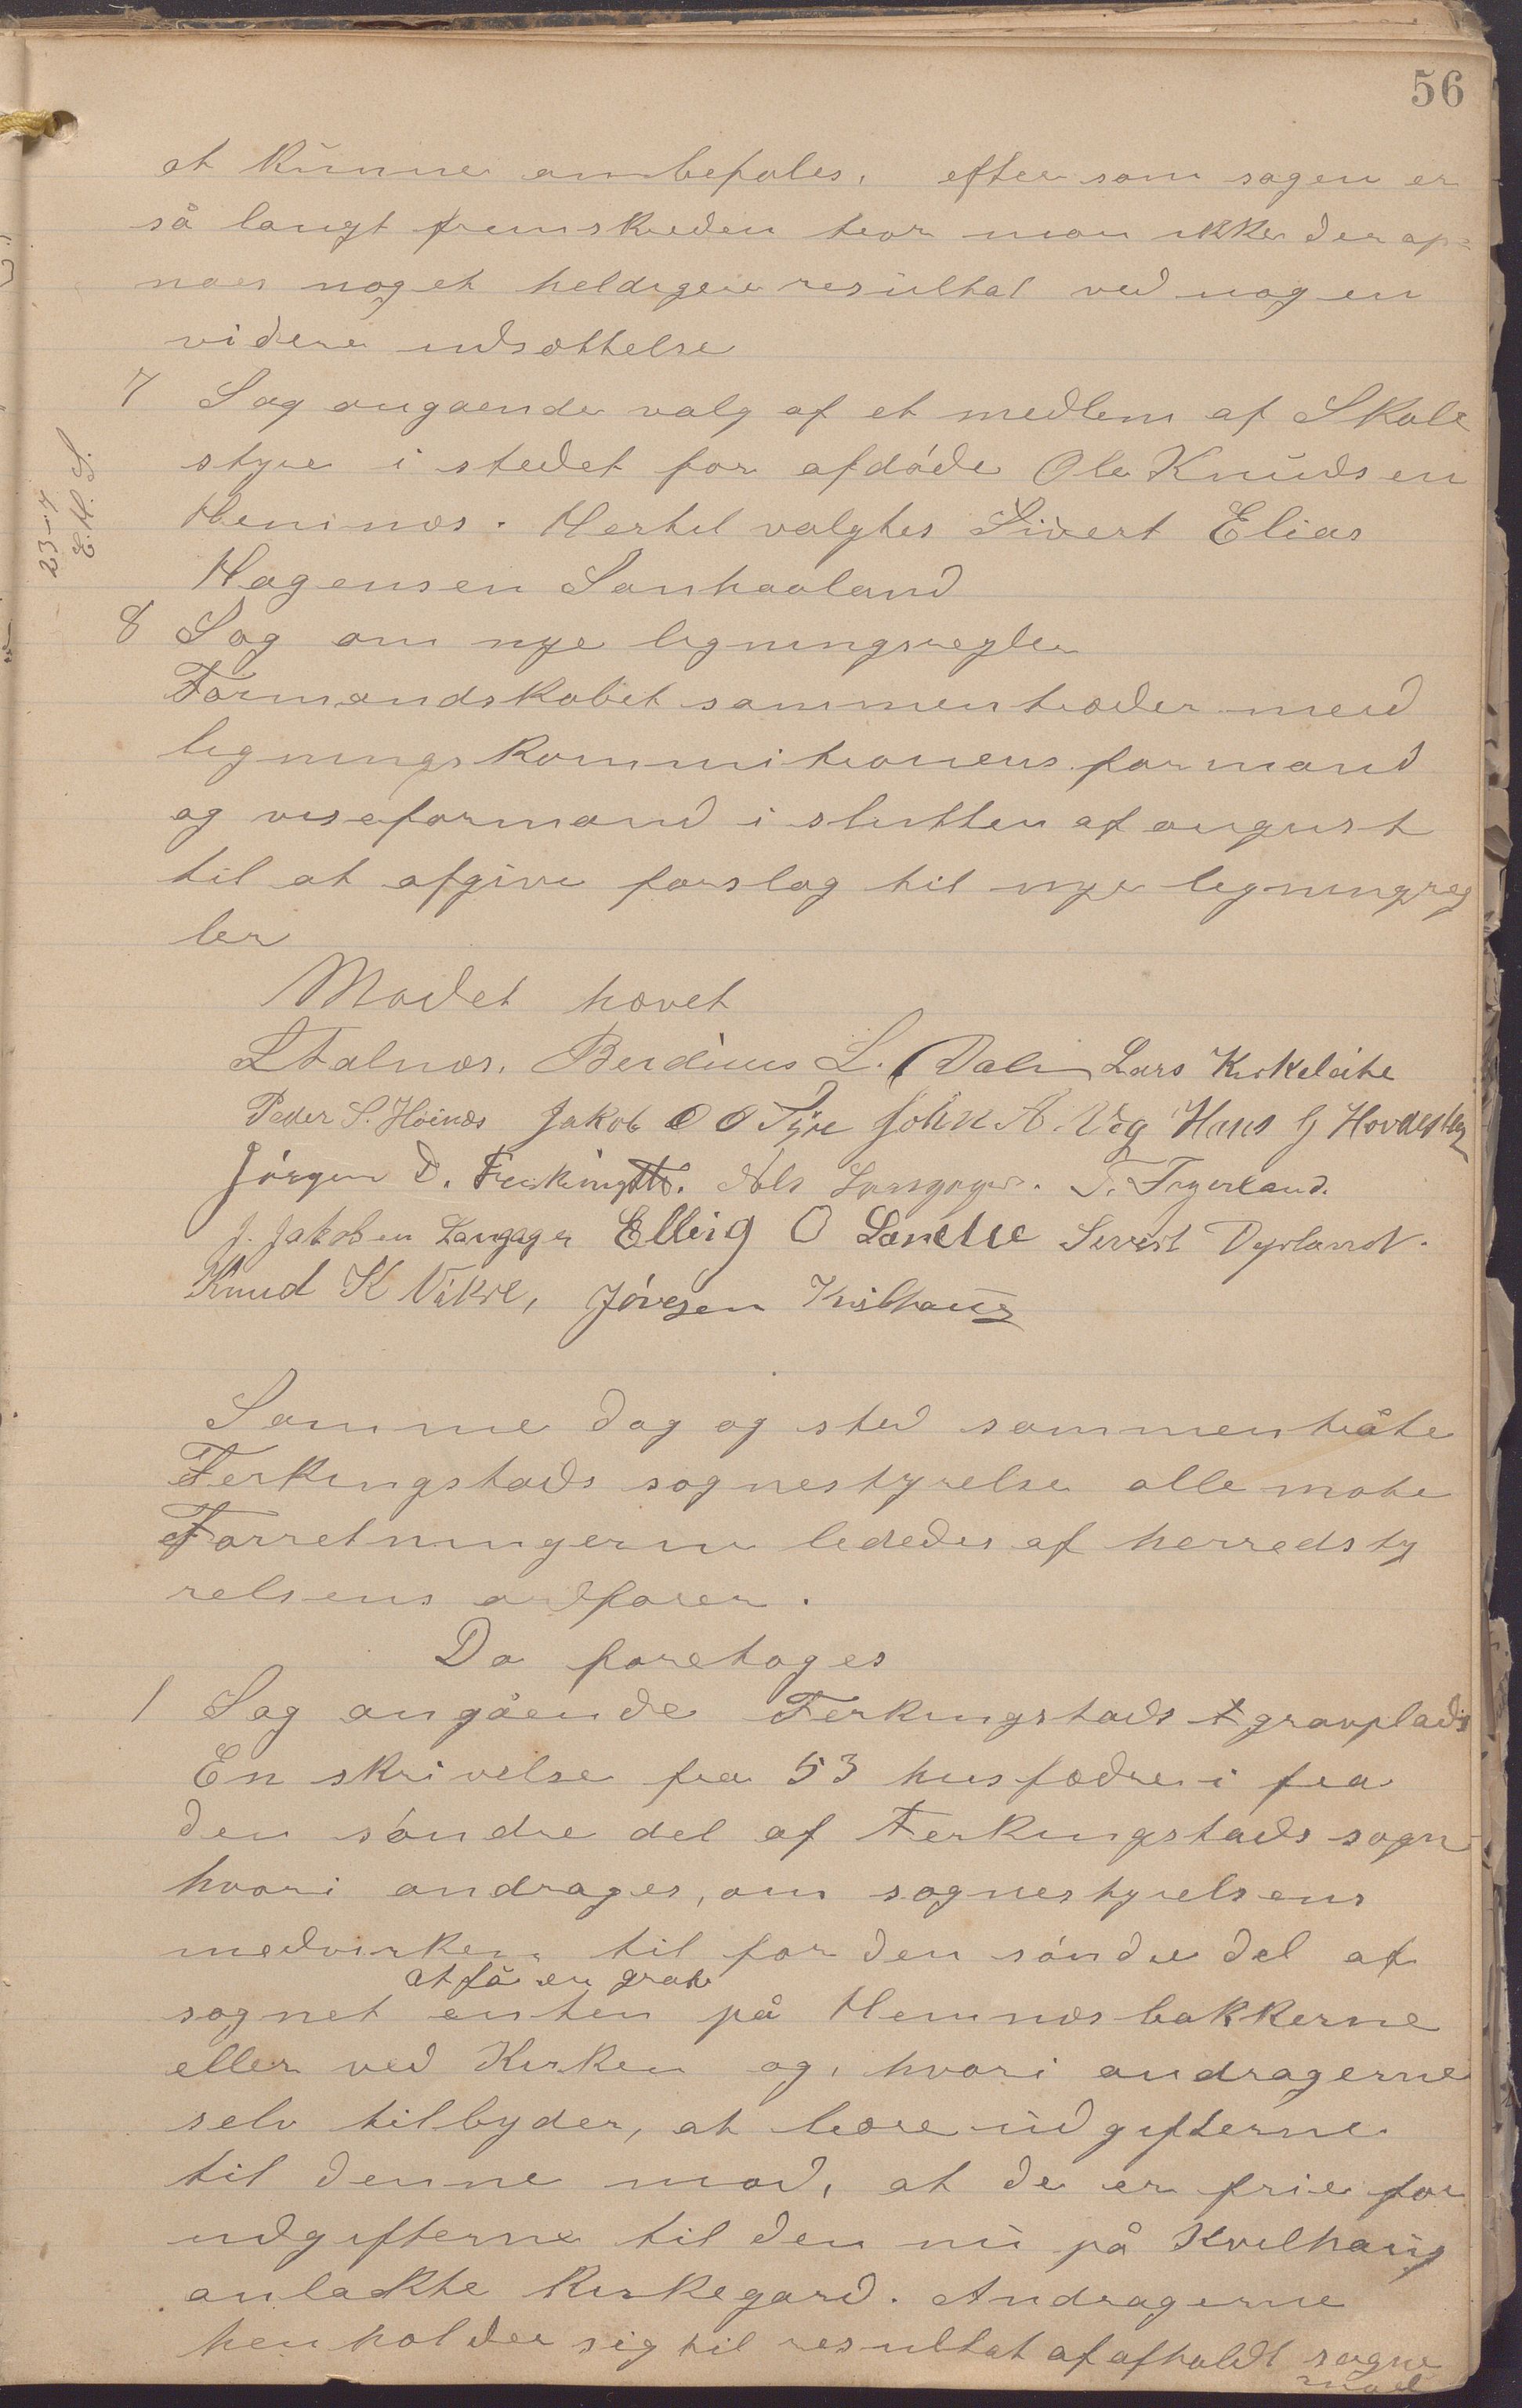 56
at kunne anbefales, efter som sagen er
så langt fremskreden tror man ikke der op-
naaes noget heldigere resultat ved nogen
videre udsættelse
7 Sag angaaende valg af et medlem af Skole
styre i stedet for afdøde Ole Knudsen
Heninæs. Hertil valgtes Sivert Elias
Hagensen Sanhaaland
23-7
E.H.S.
8 Sag om nye ligningsregler
Formandskabet sammentræder med
ligningskommitionens formand
og viseformand i slutten af august
til at afgive forslag til nye ligningsreg
ler
Mødet hævet
L Stalnæs. Berdines L. Dale Lars Kirkeleite
Peder S. Høinæs Jakob O O Syre John A. Våg Hans G Hovdesten
Jørgen D. Ferkingst. Nels Langager. T. Tygerland.
J. Jakobsen Langager Elling O Sandve Sivert Dyrland.
Knud K Vikre, Jørgen Kvilhaug
Samme dag og sted sammentråte
Ferkingstads sognestyrelse alle møtte
Forretningerne lededes af herredsty
relsens ordfører.
Da foretoges
1 Sag angående Ferkingstads gravplads
En skrivelse fra 53 husfædre i fra
den søndre del af Ferkingstads sogn
hvori andrages, om sognestyrelsens
medvirken til for den søndre del af
at få en grav
sognet enten på Hemnæsbakkerne
eller ved Kirken og, hvori andragerne
selv tilbyder, at bære udgifterne
til denne mod, at de er frie for
udgifterne til den nu på Kvilhaug
anlagte kirkegård. Andragerne
henholder sig til resultat af afholdt sogne
mød